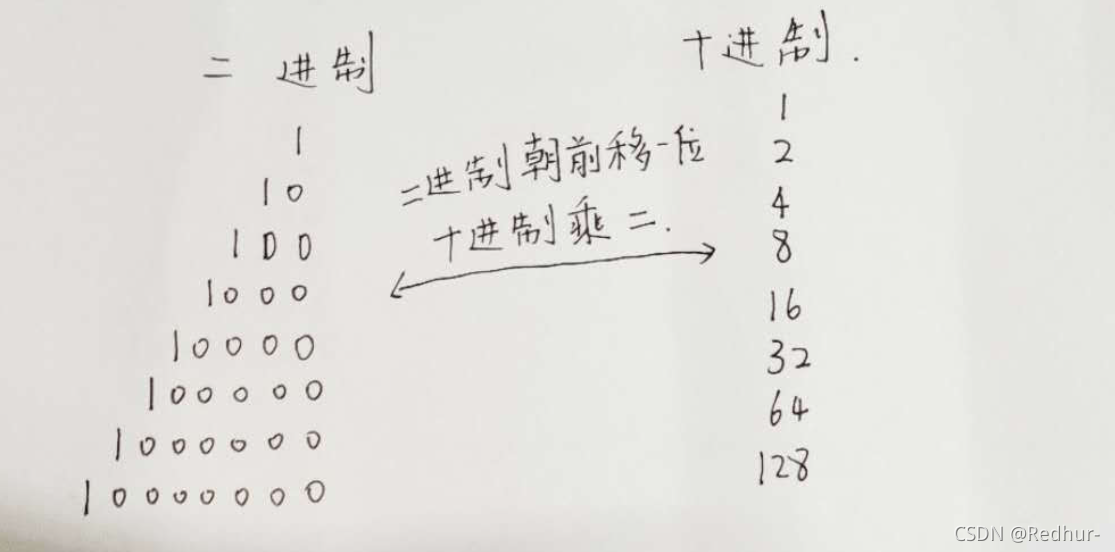 二 进制
1
10
100
1000
10000
100000
1000000
10000000
二进制朝前移一位
十进制乘二.
十进制.
1
2
4
8
16
32
64
128
CSDN @Redhur-